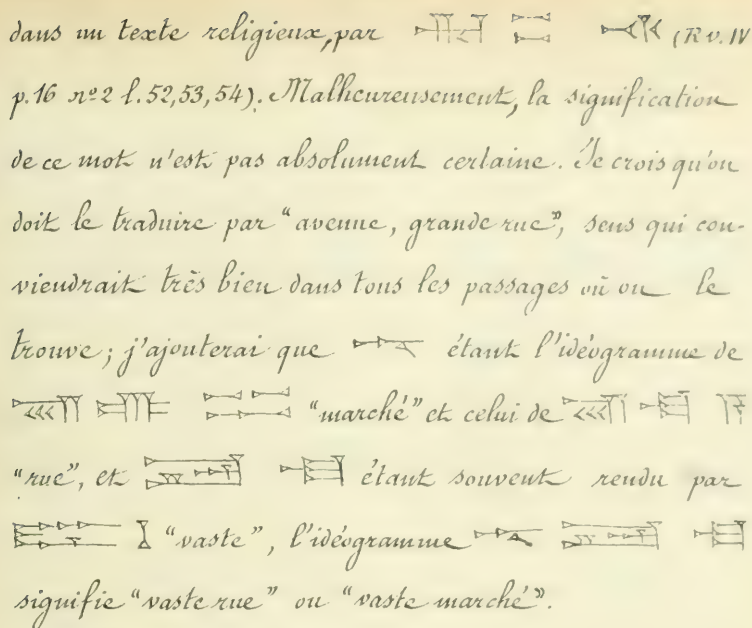 dans un texte religieux, par (R v. IV
p. 16 nº 2 l. 52, 53, 54). Malheureusement, la signification
de ce mot n'est pas absolument certaine. Je crois qu'on
doit le traduire par “avenue, grande rue”, sens qui con-
viendrait très bien dans tous les passages où on le
trouve ; j'ajouterai que étant l'idéogramme de
“marché” et celui de
“rue”, et étant souvent rendu par
“vaste”, l'idéogramme
signifie “vaste rue” ou “vaste marché”.